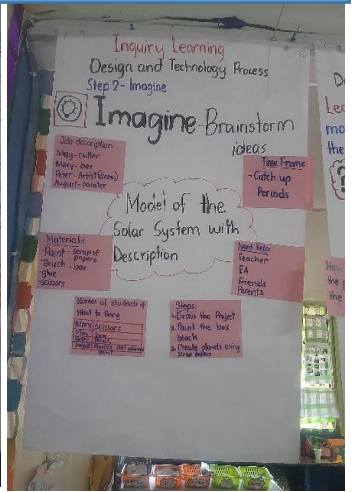 Inquiry Learning
Design and Technology Process
Step 2 - Imagine
Imagine - Brainstorm
ideas
Job description
May - cutter
Mary - box
Peter - Artist (draw)
August - painter
Time Frame
- Catch up
Periods
Model of the
Solar System with
Description
Materials
Paint - scrap of
papers
Brush - box
glue
scissors
Need Help
Teacher
EA
Friends
Parents
Names of students &
what to bring
Mary scissors
Steps:
1. Draw the Project
2. Paint the box
black
3. Create planets using